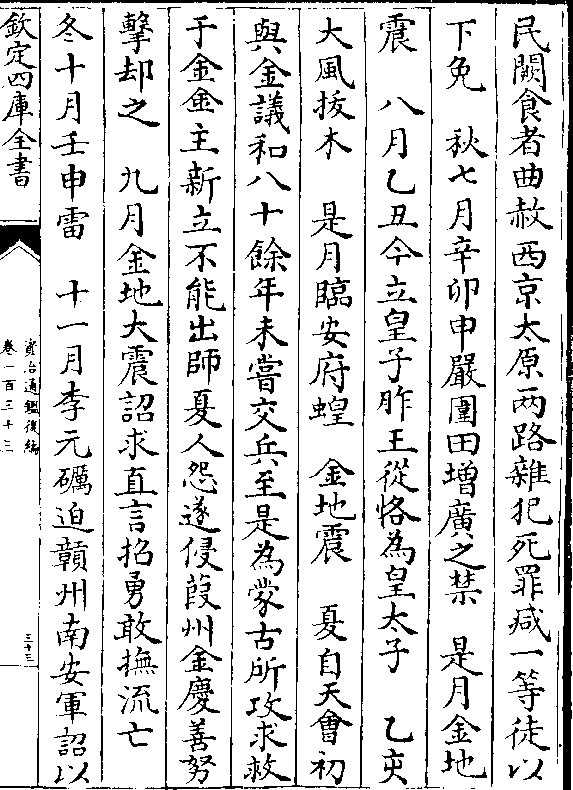 民闕食者曲赦西京太原兩路雜犯死罪减一等徒以
下免　秋七月辛卯申嚴圍田增廣之禁　是月金地
震　八月乙丑令立皇子胙王從恪為皇太子　乙亥
大風拔木　是月臨安府蝗　金地震　夏自天會初
與金議和八十餘年未嘗交兵至是為蒙古所攻求救
于金金主新立不能出師夏人怨遂侵葭州金慶善努
擊却之　九月金地大震詔求直言招勇敢撫流亡
冬十月壬申雷　十一月李元礪迫贛州南安軍詔以
欽定四庫全書
資治通鑑後編
卷一百三十三
三十三